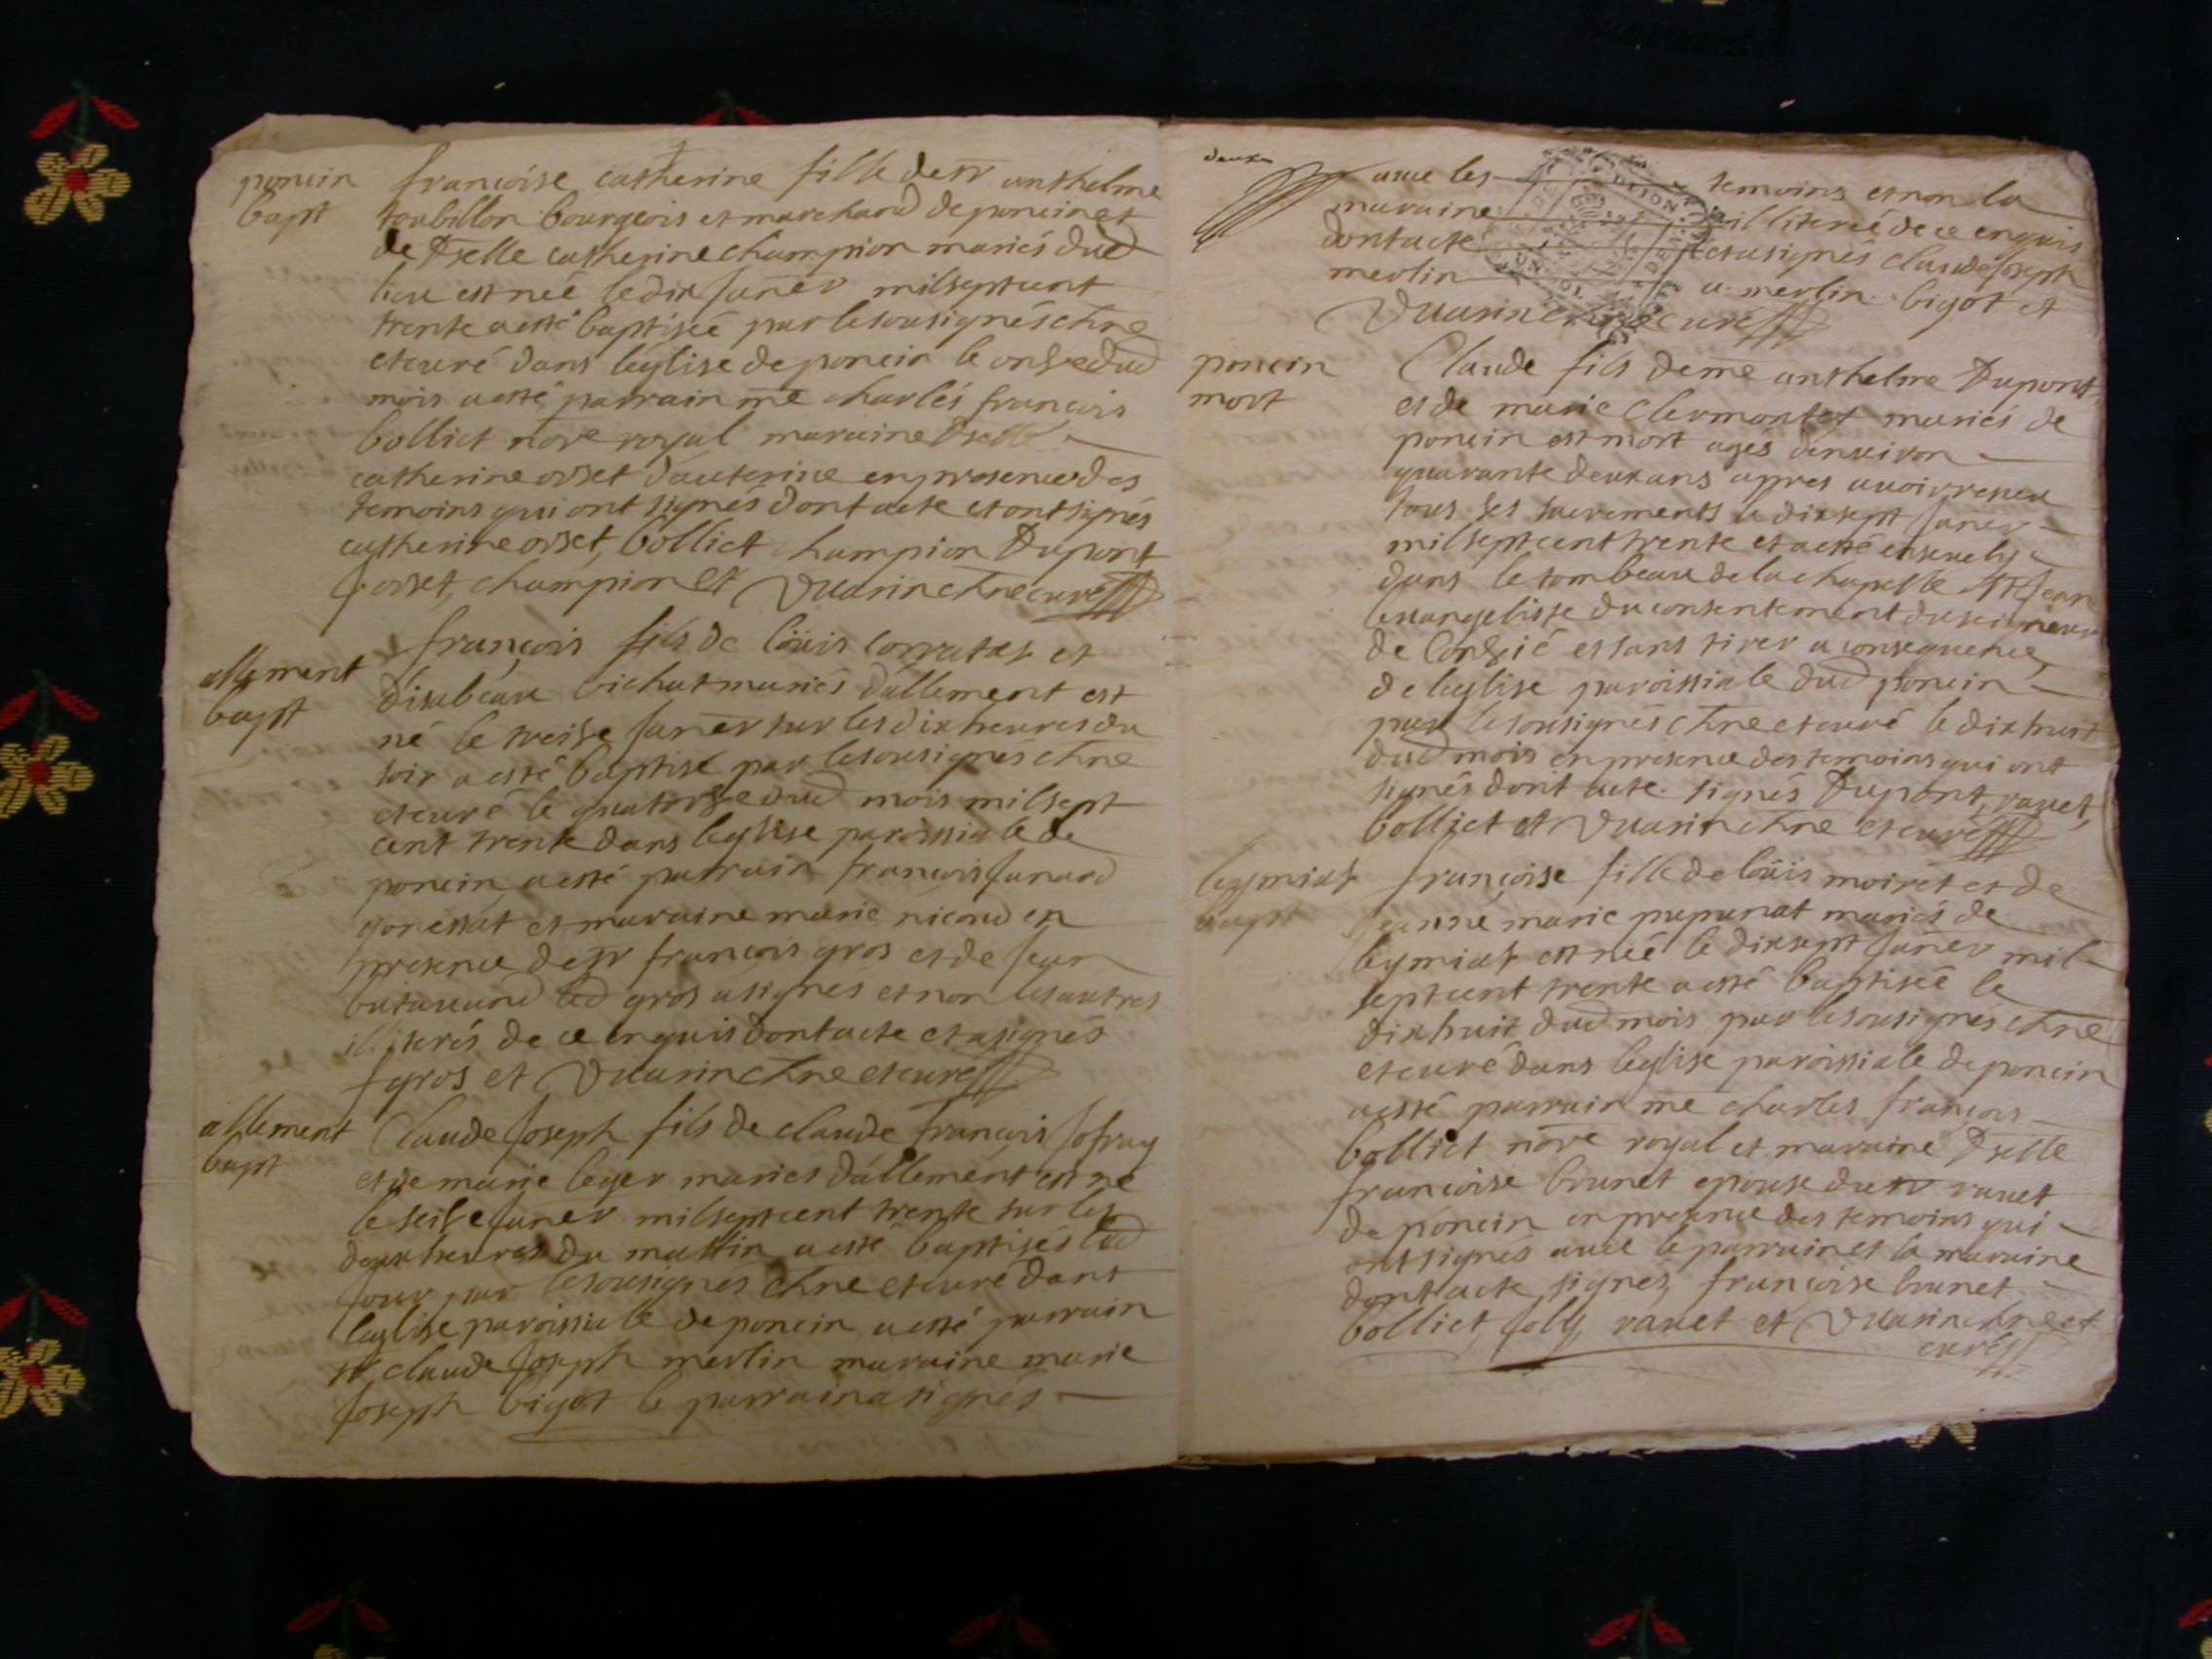 poncin françoise catherine fille de sr anthelme
bapt toubillon bourgeois et marchand de poncin et
de Dselle catherine champion mariés dud
lieu est neé le dix Janer mil sept cent
trente a esté baptiseé par le sousignés chne
et curé dans leglise de poncin le onze dud
mois a esté parrain me charles françois
bolliet nore royal maraine Dselle
catherine orset dauterive en presence des
temoins qui ont signés dont acte et ont signés
catherine orset, bolliet champion Dupont
J orset, champion et Vuarin chne curé
françois fils de loüis corratet et
allement disabeau bichat mariés dallement est
bapt né le treise Janer sur les dix heures du
soir a esté baptisé par le sousignes chne
et curé le quatorze dud mois mil sept
cent trente dans leglise paroissiale de
poncin a esté parrain françois Janard
gonessat et maraine marie nicoud en
presence de sr françois gros et de Jean
butavand led gros a signés et non les autres
illiterés de ce enquis dont acte et a signés
f gros et Vuarin chne et curé
allement Claude Joseph fils de claude françois Jofray
bapt et de marie leger mariés dallement est né
le seize Janer mil sept cent trente sur les
deux heures du mattin a esté baptisés led
Jour par le sousignes chne et curé dans
leglise paroissiale de poncin a esté parrain
sr claude Joseph merlin maraine marie
Joseph bigot le parrain a signés
deux
avec les temoins et non la
maraine illitereé de ce enquis
dont acte et a signés claude Joseph
merlin a. merlin. bigot et
Vuarin chne curé
poncin Claude fils de me anthelme Dupont
mort et de marie clermontet mariés de
poncin est mort ages denviron
quarante deux ans apres avoir receu
tous ses sacrements a dix sept Janer
mil sept cent trente et a esté ensevely
dans le tombeau de la chapelle St Jean
levangeliste du consentement du seigneur
de Conzié et sans tirer a consequence
de leglise paroissiale dud poncin
par le sousignés chne et curé le dix huit
dud mois en presence des temoins qui ont
signés dont acte. signés Dupont, ravet,
bolliet et Vuarin chne et curé
leymiat françoise fille de loüis moiret et de
bapt Jeanne marie pupunat mariés de
leymiat est neé le dix sept Janer mil
sept cent trente a esté baptiseé le
dix huit dud mois par le sousignes chne
et curé dans leglise paroissiale de poncin
a esté parrain me charles françois
bolliet nore royal et maraine Dselle
françoise brunet epouse du sr ravet
de poncin en presence des temoins qui
ont signés avec le parrain et la maraine
dont acte signés, françoise brunet
bolliet Jolly ravet et Vuarin chne et
curé